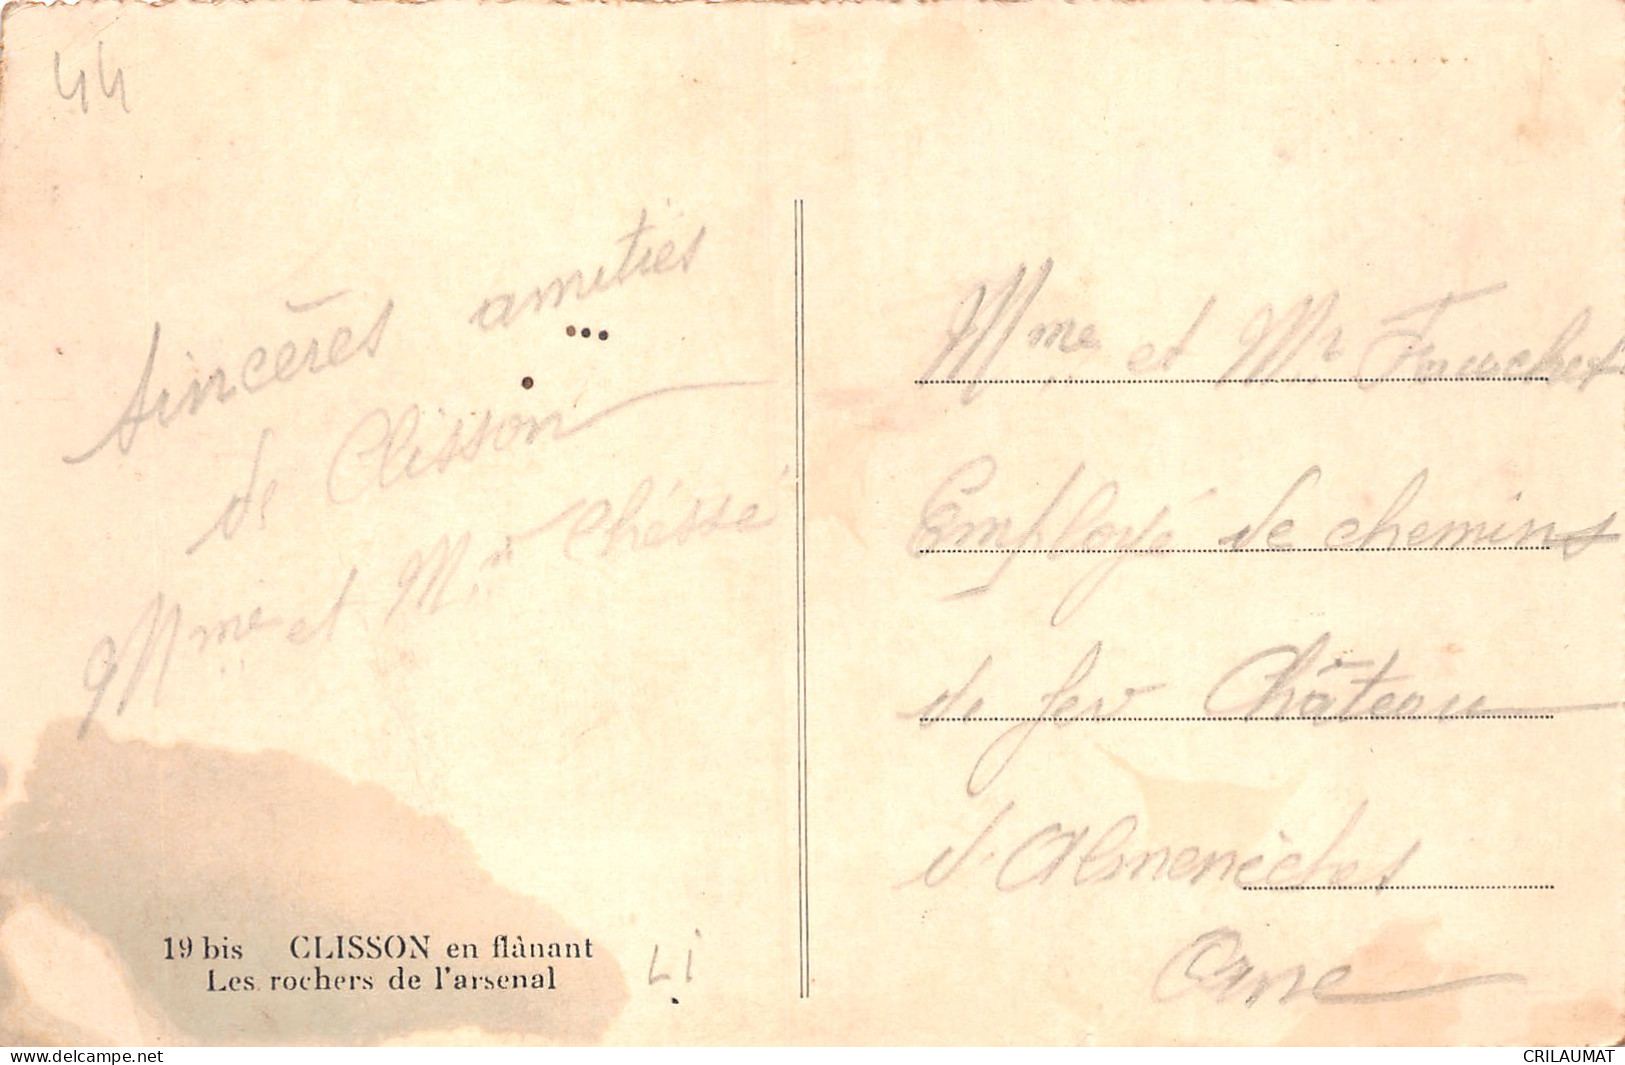 44
Sincères amitiés
de Clisson
Mme et Mr Chéssé
19 bis CLISSON en flânant
Les rochers de l'arsenal
LI
Mme et Mr Fouchet
Employé de chemins
de fer Château
d'Almenèches
Orne
delcampe.net
CRILAUMAT